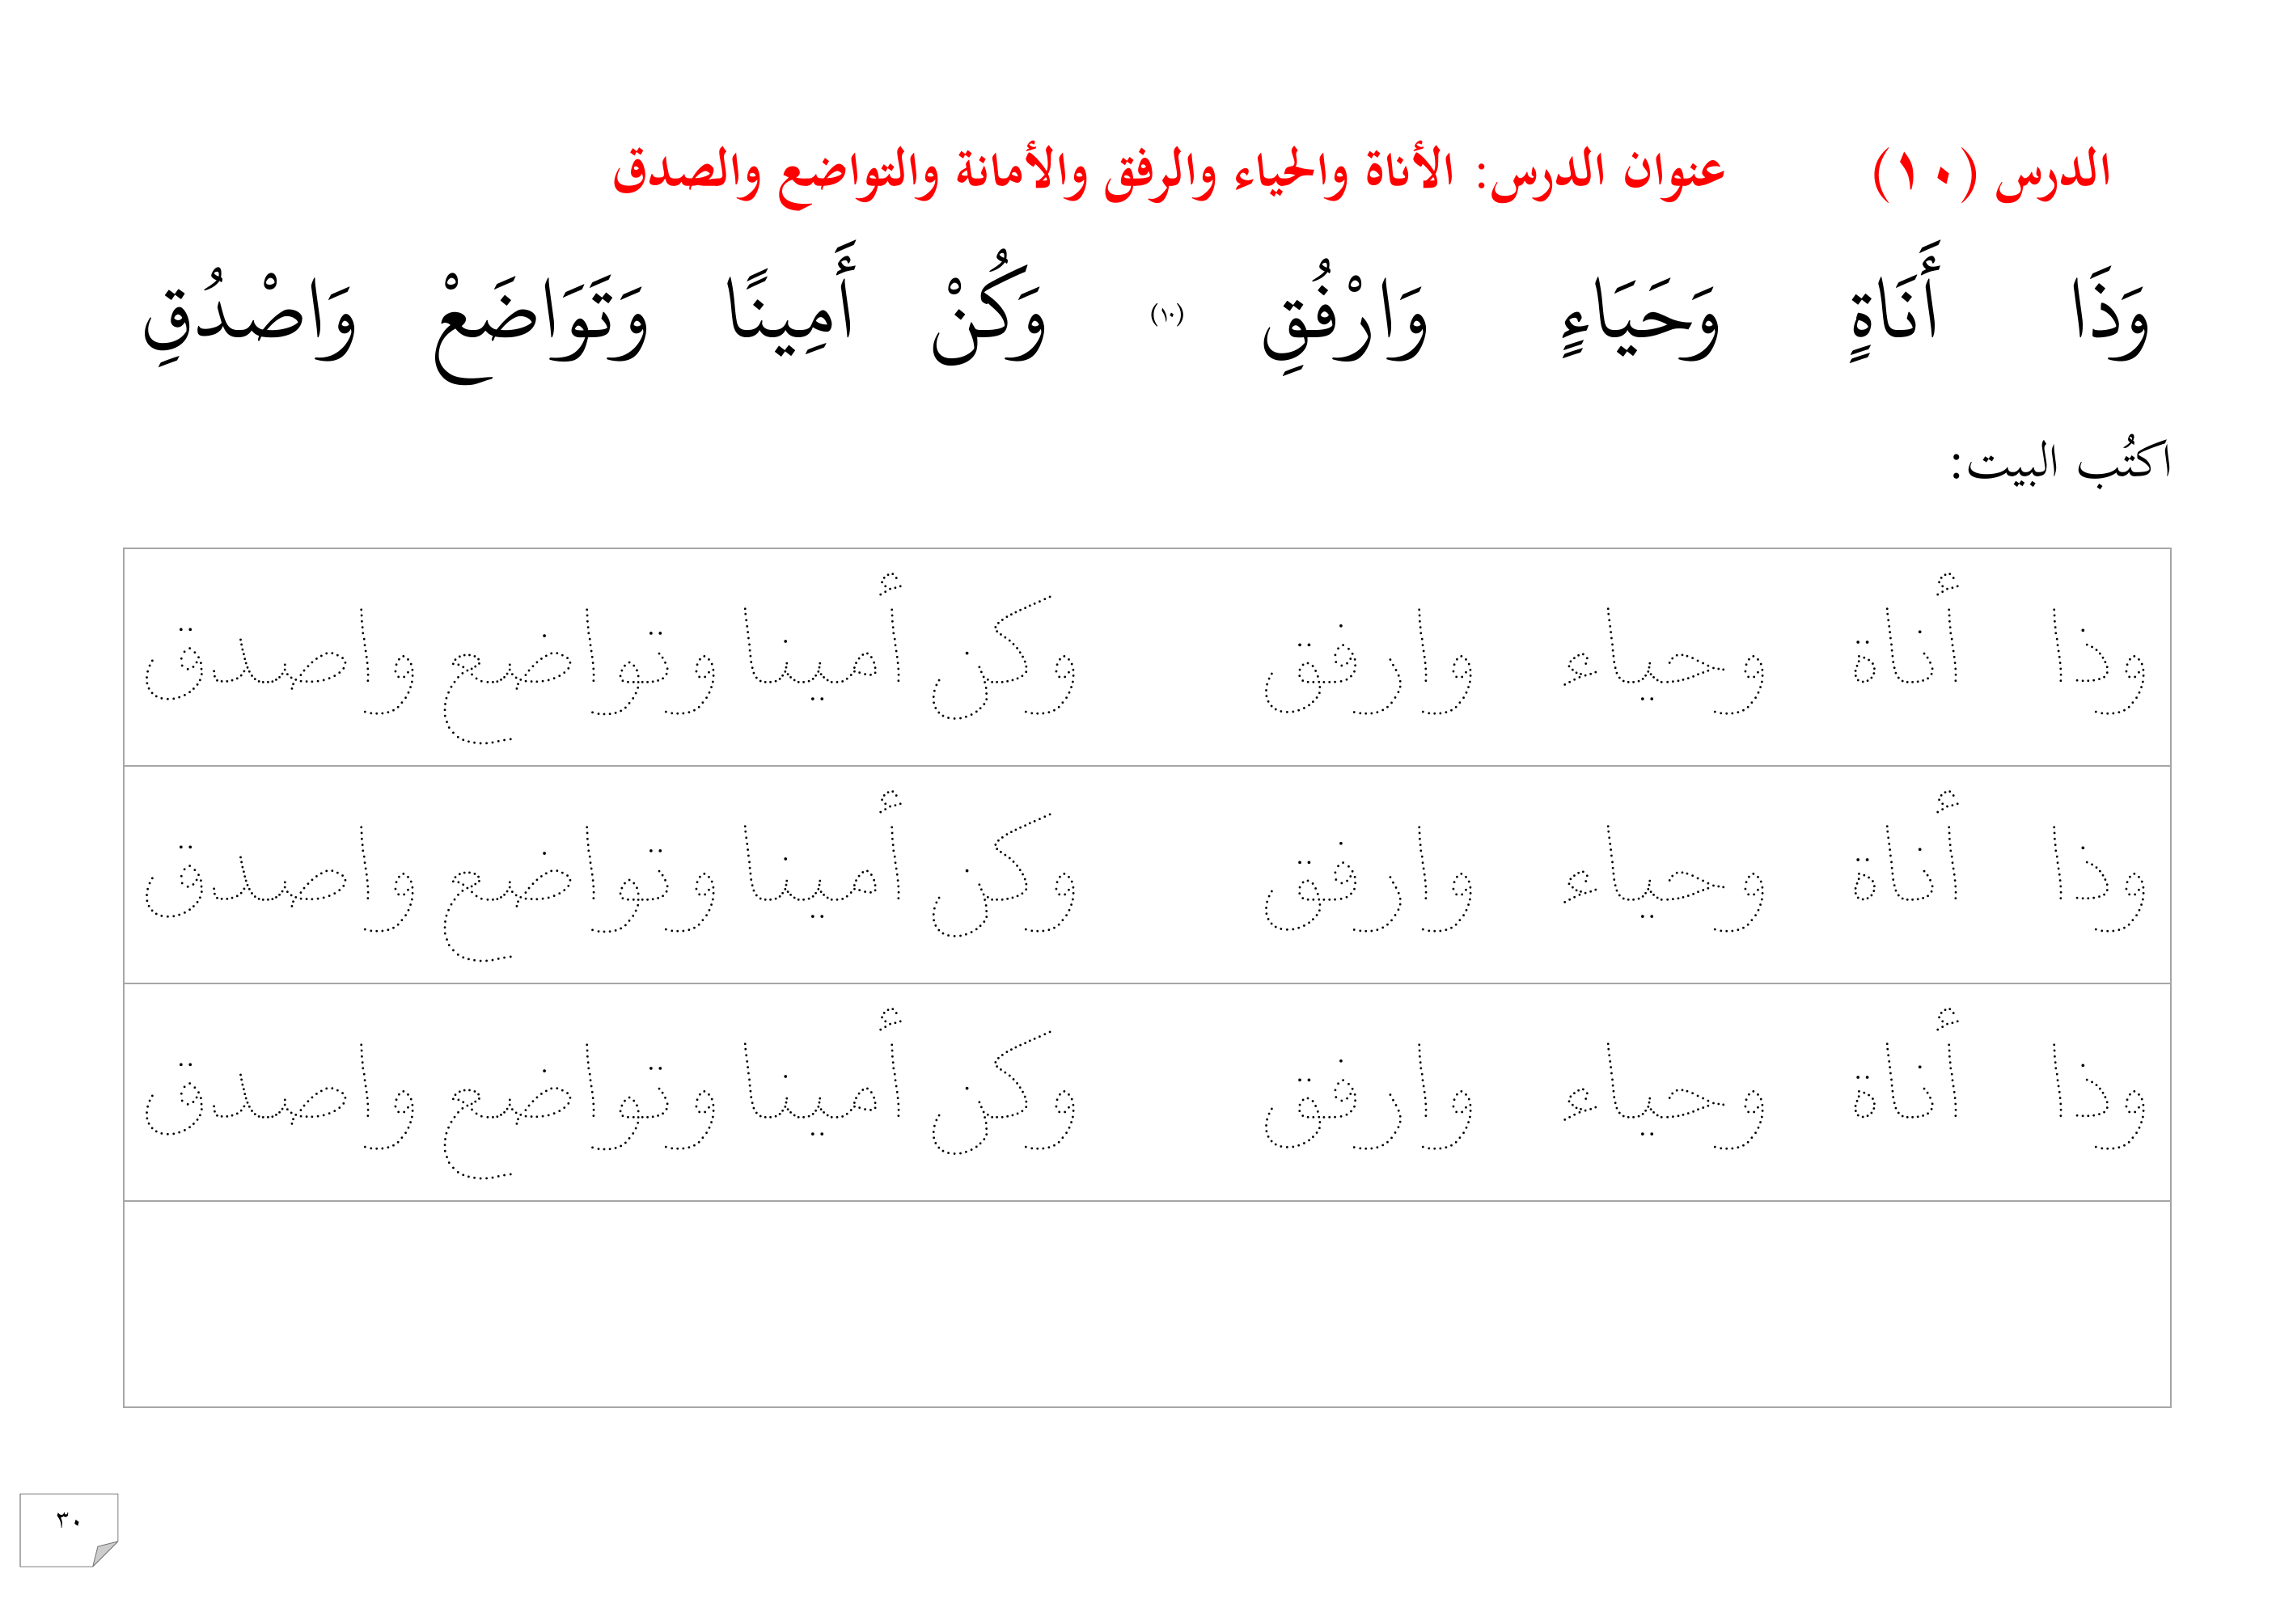 الدرس (١٠) عنوان الدرس: الأناة والحياء والرفق والأمانة والتواضع والصدق
وَذَا أَنَاةٍ وَحَيَاءٍ وَارْفُقِ (١٠) وَكُنْ أَمِينًا وَتَوَاضَعْ وَاصْدُقِ
اكتُب البيت:
وذا أناة وحياء وارفق وكن أمينا وتواضع واصدق
وذا أناة وحياء وارفق وكن أمينا وتواضع واصدق
وذا أناة وحياء وارفق وكن أمينا وتواضع واصدق
٣٠